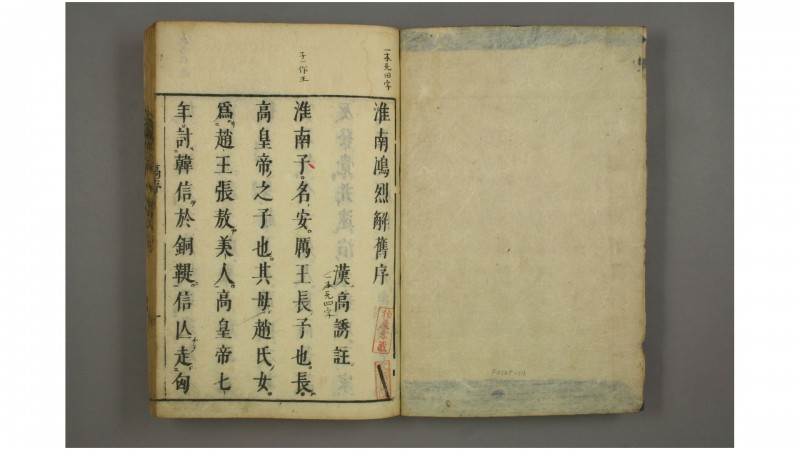 淮南鴻烈解舊序
漢高誘註
淮南子名安厲王長子也長
高皇帝之子也其母趙氏女
爲趙王張敖美人高皇帝七
年討韓信於銅鞮信亾走匈
一本无旧字
子一作王
一本无四字